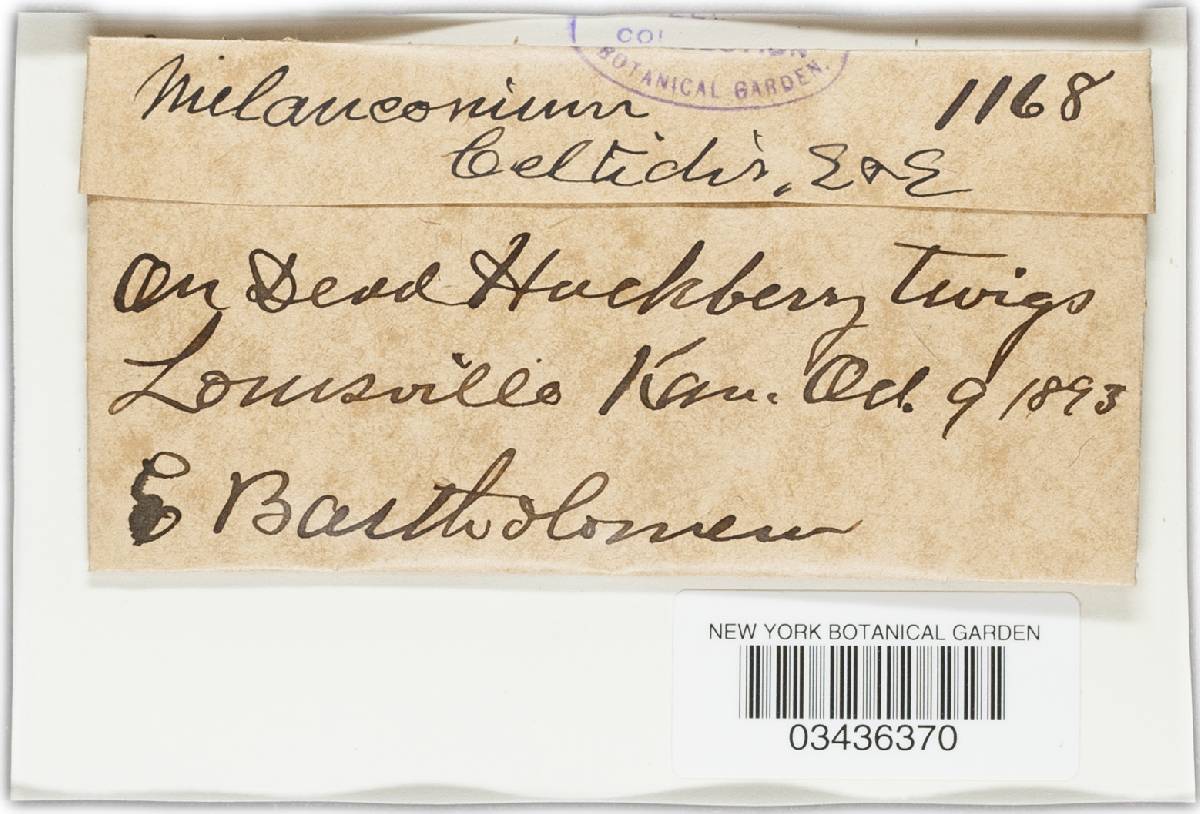 COLLECTION
BOTANICAL GARDEN.
Melanconium 1168
Celtidis, E & E
On Dead Hackberry twigs
Louisville Kan. Oct. 9 1893
E Bartholomew
NEW YORK BOTANICAL GARDEN
03436370